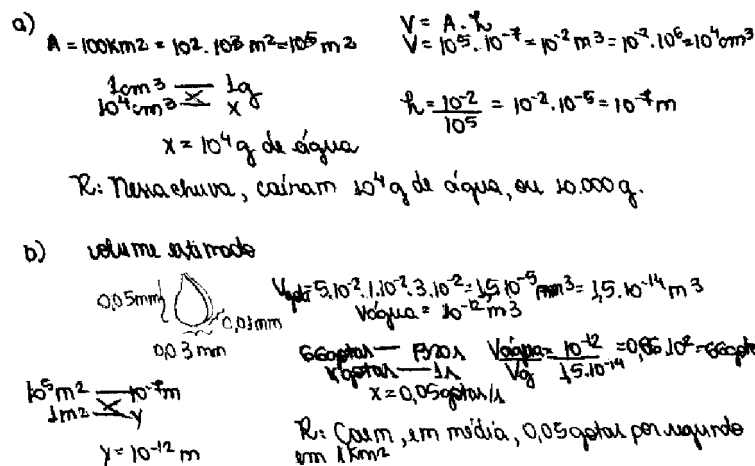 a)
A = 100Km2 = 10². 10³ m² = 10⁵ m2
V = A . h
V = 10⁵. 10⁻⁷ = 10⁻² m³ = 10⁻². 10⁶ = 10⁴ cm³
1cm³ — 1g
10⁴ cm³ — x
h = 10⁻²/10⁵ = 10⁻². 10⁻⁵ = 10⁻⁷ m
x = 10⁴ g de água
R: Nessa chuva, caíram 10⁴ g de água, ou 10.000 g.
b) volume estimado
0,05mm
0,01mm
0,03 mm
Vgota = 5.10⁻². 1.10⁻². 3.10⁻² = 1,5.10⁻⁵ mm³ = 1,5.10⁻¹⁴ m³
Vágua = 10⁻¹² m3
66gotas —
x gotas — 1s
x = 0,05 gotas/s
Vágua/Vg = 10⁻¹²/1,5.10⁻¹⁴ =
10⁵ m² — 10⁻⁷ m
1m² — y
y = 10⁻¹² m
R: Caem, em média, 0,05 gotas por segundo
em 1 Km²